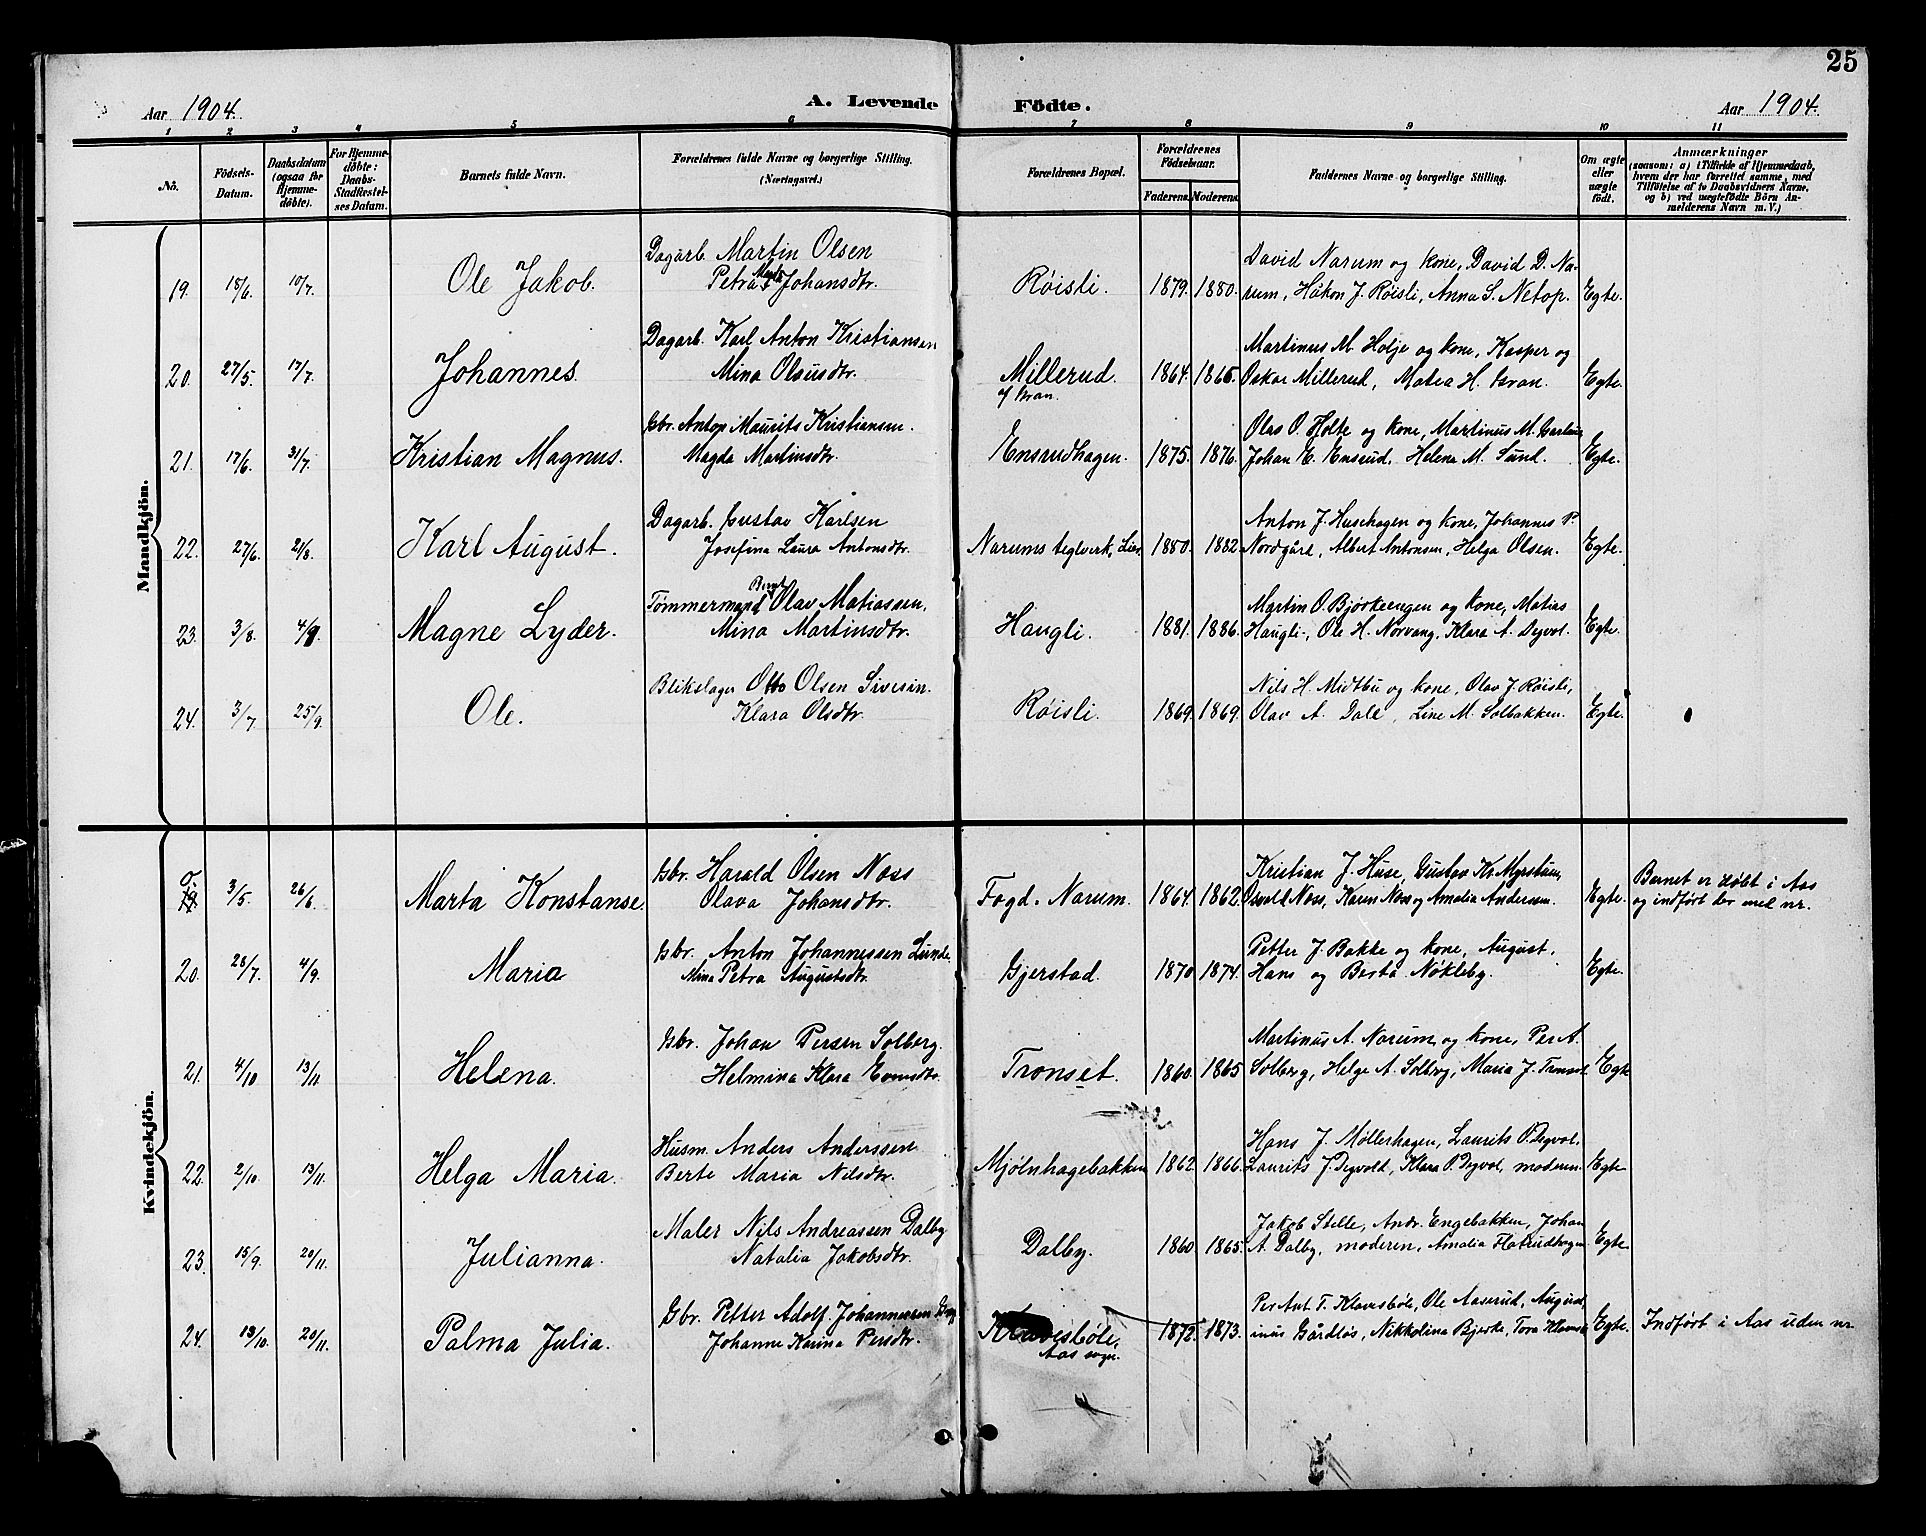 25
Aar 1904. A. Levende Födte. Aar 1904.
1 2 3 4 5 6 7 8 9 10 11
No. Födsels-Datum. Daabsdatum (ogsaa for Hjemme-döbte). For Hjemme-döbte: Daabs-Stadfæstel-ses Datum. Barnets fulde Navn. Forældrenes fulde Navne og borgerlige Stilling. (Næringsvei.) Forældrenes Bopæl. Forældrenes Födselsaar. Faderens. Moderens. Faddernes Navne og borgerlige Stilling. Om ægte eller uægte födt. Anmærkninger (saasom: a) i Tilfælde af Hjemmedaab, hvem der har forrettet samme, med Tilföielse af to Daabsvidners Navne, og b) ved uægtefödte Börn An-melderens Navn m. V.)
Mandkjön.
Dagarb. Martin Olsen
David Narum og kone, David D. Na-
19. 18/6. 10/7. Ole Jakob. Petra Johansdtr. Røisli. 1879. 1880. rum, Håkon J. Røisli, Anna S. Netop. Egte.
Dagarb. Karl Anton Kristiansen
Martinus M. Holje og kone, Kasper og
20. 27/5. 17/7. Johannes. Mina Olsdtr. Millerud. 1864. 1865. Oskar Millerud, Matea H. Kran. Egte.
Gbr. Anton Maurits Kristiansen.
Olas O. Holte og kone, Martinus M.
21. 17/6. 31/7. Kristian Magnus. Magda Martinsdtr. Ensrudhagen. 1875. 1876. Johan E. Ensrud, Helena M. Sund. Egte.
Dagarb. Gustav Karlsen
Anton J. Husehagen og kone, Johannes P.
22. 27/6. 21/8. Karl August. Josefina Laura Antonsdtr. Narums teglverk, Lier. 1880. 1882 Nordgård, Albert Antonsen, Helga Olsen. Egte.
Bernt
Tømmermand Olav Matiassen,
Martin O. Bjørkeengen og kone, Matias
23. 3/8. 4/9. Magne Lyder. Mina Martinsdtr. Haugli. 1881. 1886. Haugli, Ole H. Norvang, Klara A. Degvol. Egte.
Blikslager Otto Olsen Sivesin.
Nils H. Midtbu og kone, Olav J. Røisli,
24. 3/7. 25/9. Ole. Klara Olsdtr. Røisli. 1869. 1869. Olav A. Dale, Line M. Solbakken. Egte.
Kvindekjön.
Gbr. Harald Olsen Noss
Kristian J. Huse, Gustav Kr. Myrstuen, Barnet er døbt i Aas
3/5. 26/6. Marta Konstanse. Olava Johansdtr. Fogd. Narum. 1864. 1862. Osvald Noss, Karen Noss og Amalia Andersen. Egte. og indført der med nr.
Gbr. Anton Johannessen Lunde.
Petter J. Bakke og kone, August,
20. 28/7. 4/9. Maria Mina Petra Augustsdtr. Gjerstad. 1870 1874. Hans og Berta Nøkleby. Egte.
Gbr. Johan Persen Solberg.
Martinus A. Narum og kone, Per A.
21. 4/10 13/11 Helena. Helmina Klara Evensdtr. Tronset. 1860. 1865 Solberg, Helge A. Solberg, Maria J. Tronset Egte
Husm. Anders Anderssen
Hans J. Møllerhagen, Laurits O. Degvol.
22. 2/10. 13/11. Helga Maria. Berte Maria Nilsdtr. Mjølnhagebakken 1862. 1866. Laurits J. Degvold, Klara O. Degvol, moderen. Egte
Maler Nils Andreassen Dalby
Jakob Stelle, Andr. Engebakken, Johan
23. 15/9. 20/11. Julianna. Natalia Jakobsdtr. Dalby. 1860. 1865. A. Dalby, moderen, Amalia Flatrudhagen Egte.
Gbr. Petter Adolf Johannessen
Per Ant. T. Klævesbøle, Ole Aaserud, August,
24. 13/10. 20/11. Palma Julia. Johanne Karina Persdtr. Klævesbøle, 1872. 1873. inus Gårdløs, Nikkolina Bjerke, Tora Egte. Indført i Aas uden nr
Aas sogn.